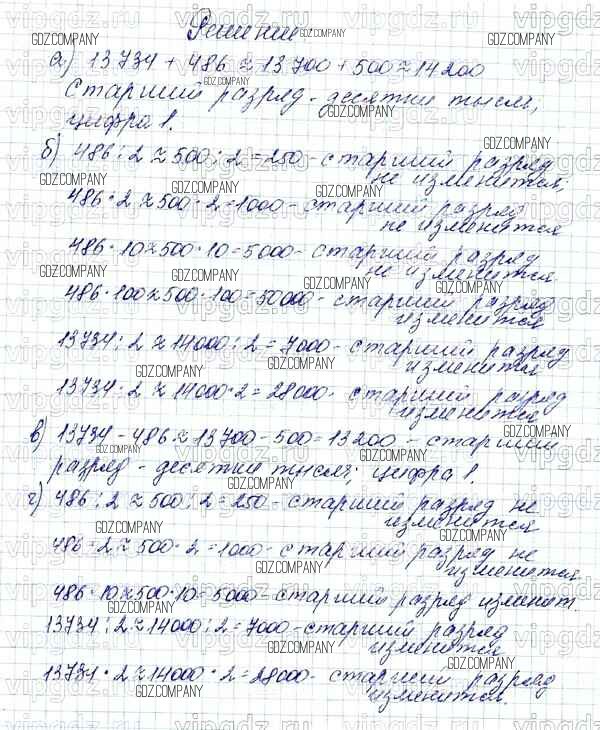 Решение
а) 13734 + 486 ≈ 13700 + 500 ≈ 14200
старший разряд - десятки тысяч,
цифра 1.
б) 486 : 2 ≈ 500 : 2 = 250 - старший разряд
не изменится;
486 · 2 ≈ 500 · 2 = 1000 - старший разряд
не изменится
486 · 10 ≈ 500 · 10 = 5000 - старший разряд
не изменится
486 · 100 ≈ 500 · 100 = 50000 - старший разряд
изменится
13734 : 2 ≈ 14000 : 2 = 7000 - старший разряд
изменится
13734 · 2 ≈ 14000 · 2 = 28000 - старший разряд
изменится
в) 13734 - 486 ≈ 13700 - 500 = 13200 - старший
разряд - десятки тысяч; цифра 1.
г) 486 : 2 ≈ 500 : 2 = 250 - старший разряд не
изменится
486 · 2 ≈ 500 · 2 = 1000 - старший разряд не
изменится.
486 · 10 ≈ 500 · 10 = 5000 - старший разряд изменит.
13734 : 2 ≈ 14000 : 2 = 7000 - старший разряд
изменится
13734 · 2 ≈ 14000 · 2 = 28000 - старший разряд
изменится.
GDZ.COMPANY
vipgdz.ru